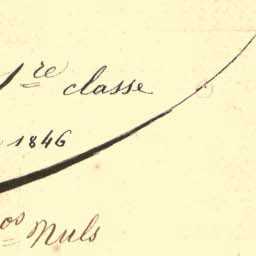 1re classe
1846
os Nuls